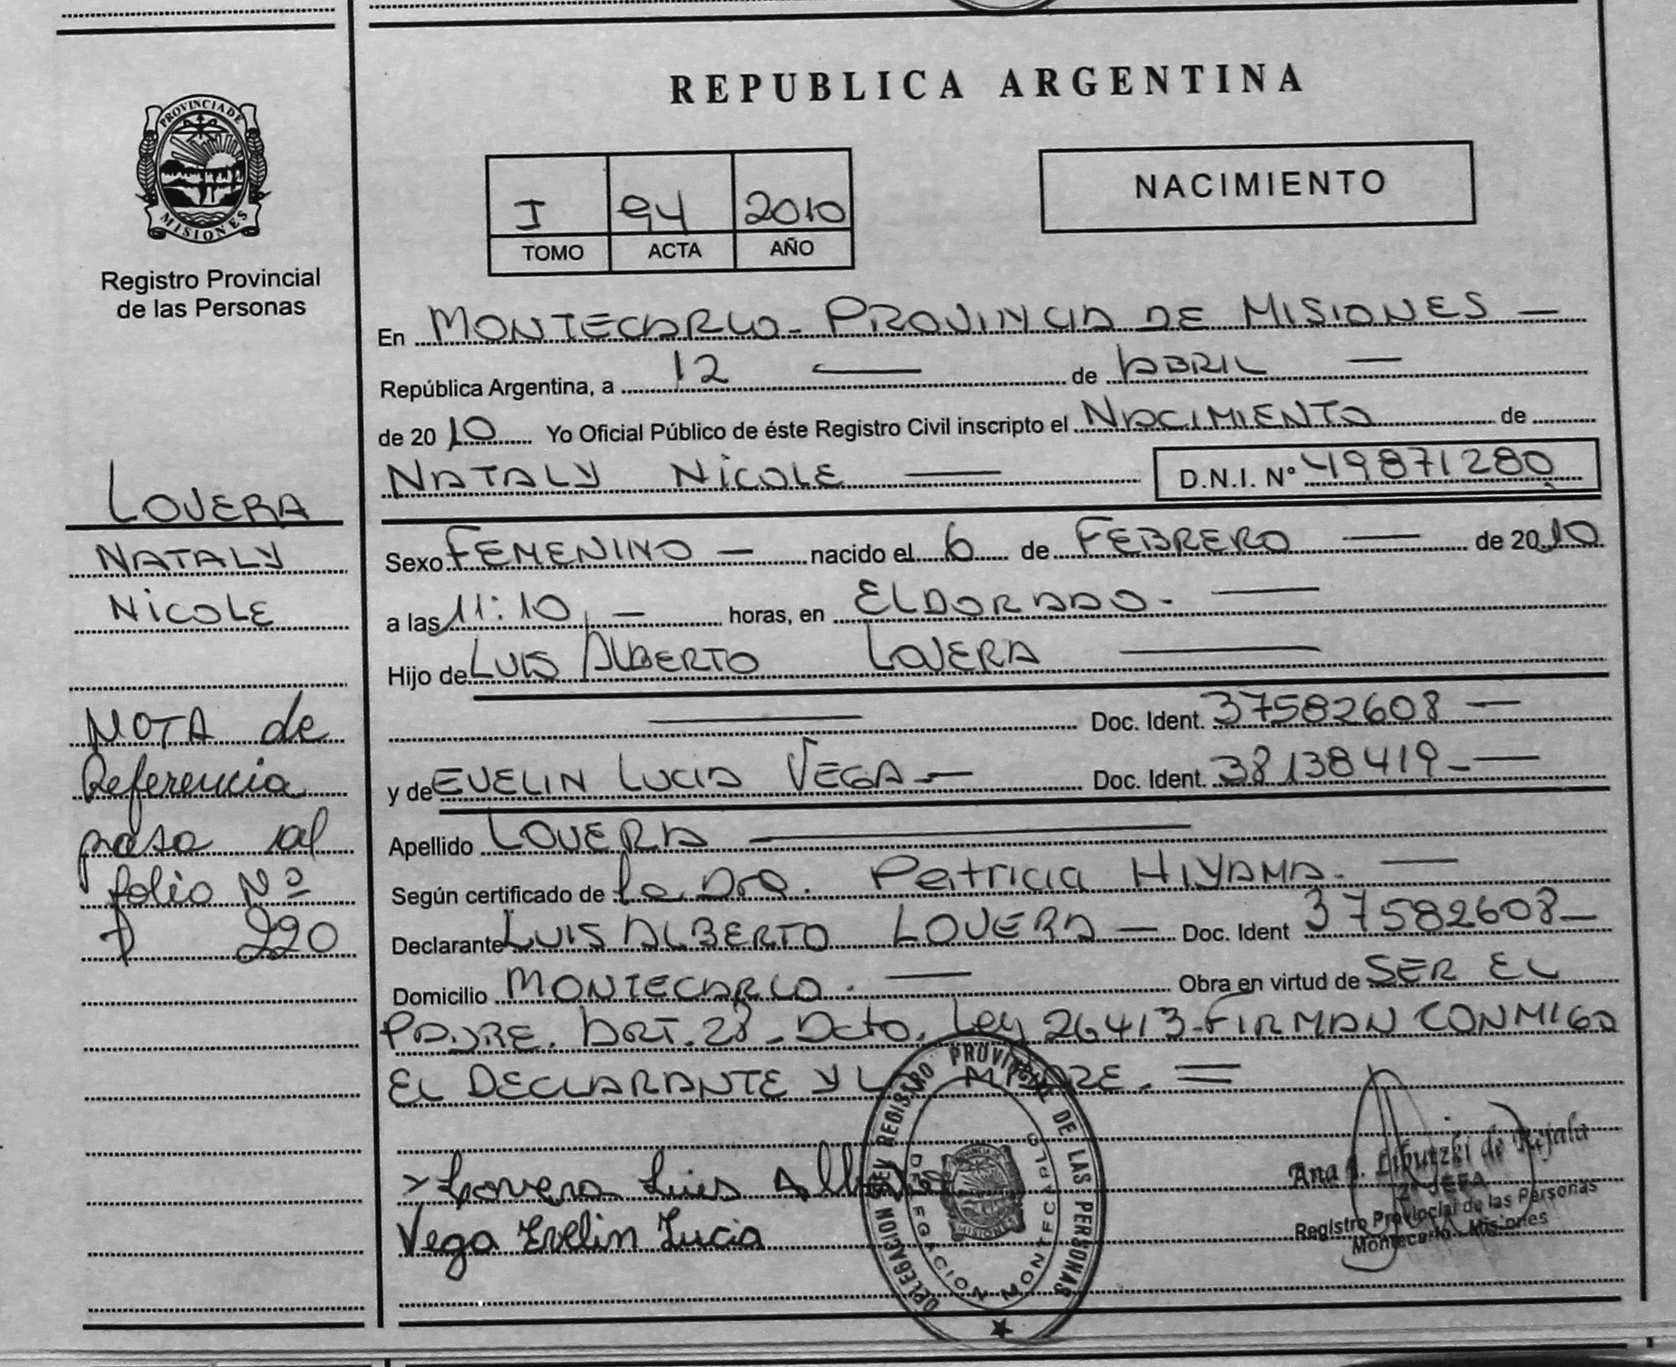 REPUBLICA ARGENTINA
PROVINCIA DE
MISIONES
Registro Provincial
de las Personas
I 94 2010
TOMO ACTA AÑO
NACIMIENTO
En MONTECARLO - PROVINCIA DE MISIONES —
República Argentina, a 12 — de ABRIL —
de 2010 Yo Oficial Público de éste Registro Civil inscripto el NACIMIENTO de
NATALY NICOLE — D.N.I. Nº 49871280
Sexo FEMENINO — nacido el 6 de FEBRERO — de 2010
a las 11:10 — horas, en ELDORADO. —
Hijo de LUIS ALBERTO LOVERA —
— Doc. Ident. 37582608 —
y de EVELIN LUCIA VEGA — Doc. Ident. 38138419 - —
Apellido LOVERA —
Según certificado de la Dra. Patricia HIYAMA. —
Declarante LUIS ALBERTO LOVERA — Doc. Ident 37582608 —
Domicilio MONTECARLO. — Obra en virtud de SER EL
PADRE. ART. 28 - Dcto. Ley 26413 - FIRMAN CONMIGO
EL DECLARANTE Y LA MADRE. =
Lovera Luis Alberto
Vega Evelin Lucia
LOVERA
NATALY
NICOLE
NOTA de
Referencia
pasa al
folio Nº
220
DELEGACION DEL REGISTRO PROVINCIAL DE LAS PERSONAS
DELEGACION MONTECARLO
MISIONES
Ana
JEFA
Registro Provincial de las Personas
Montecarlo - Misiones